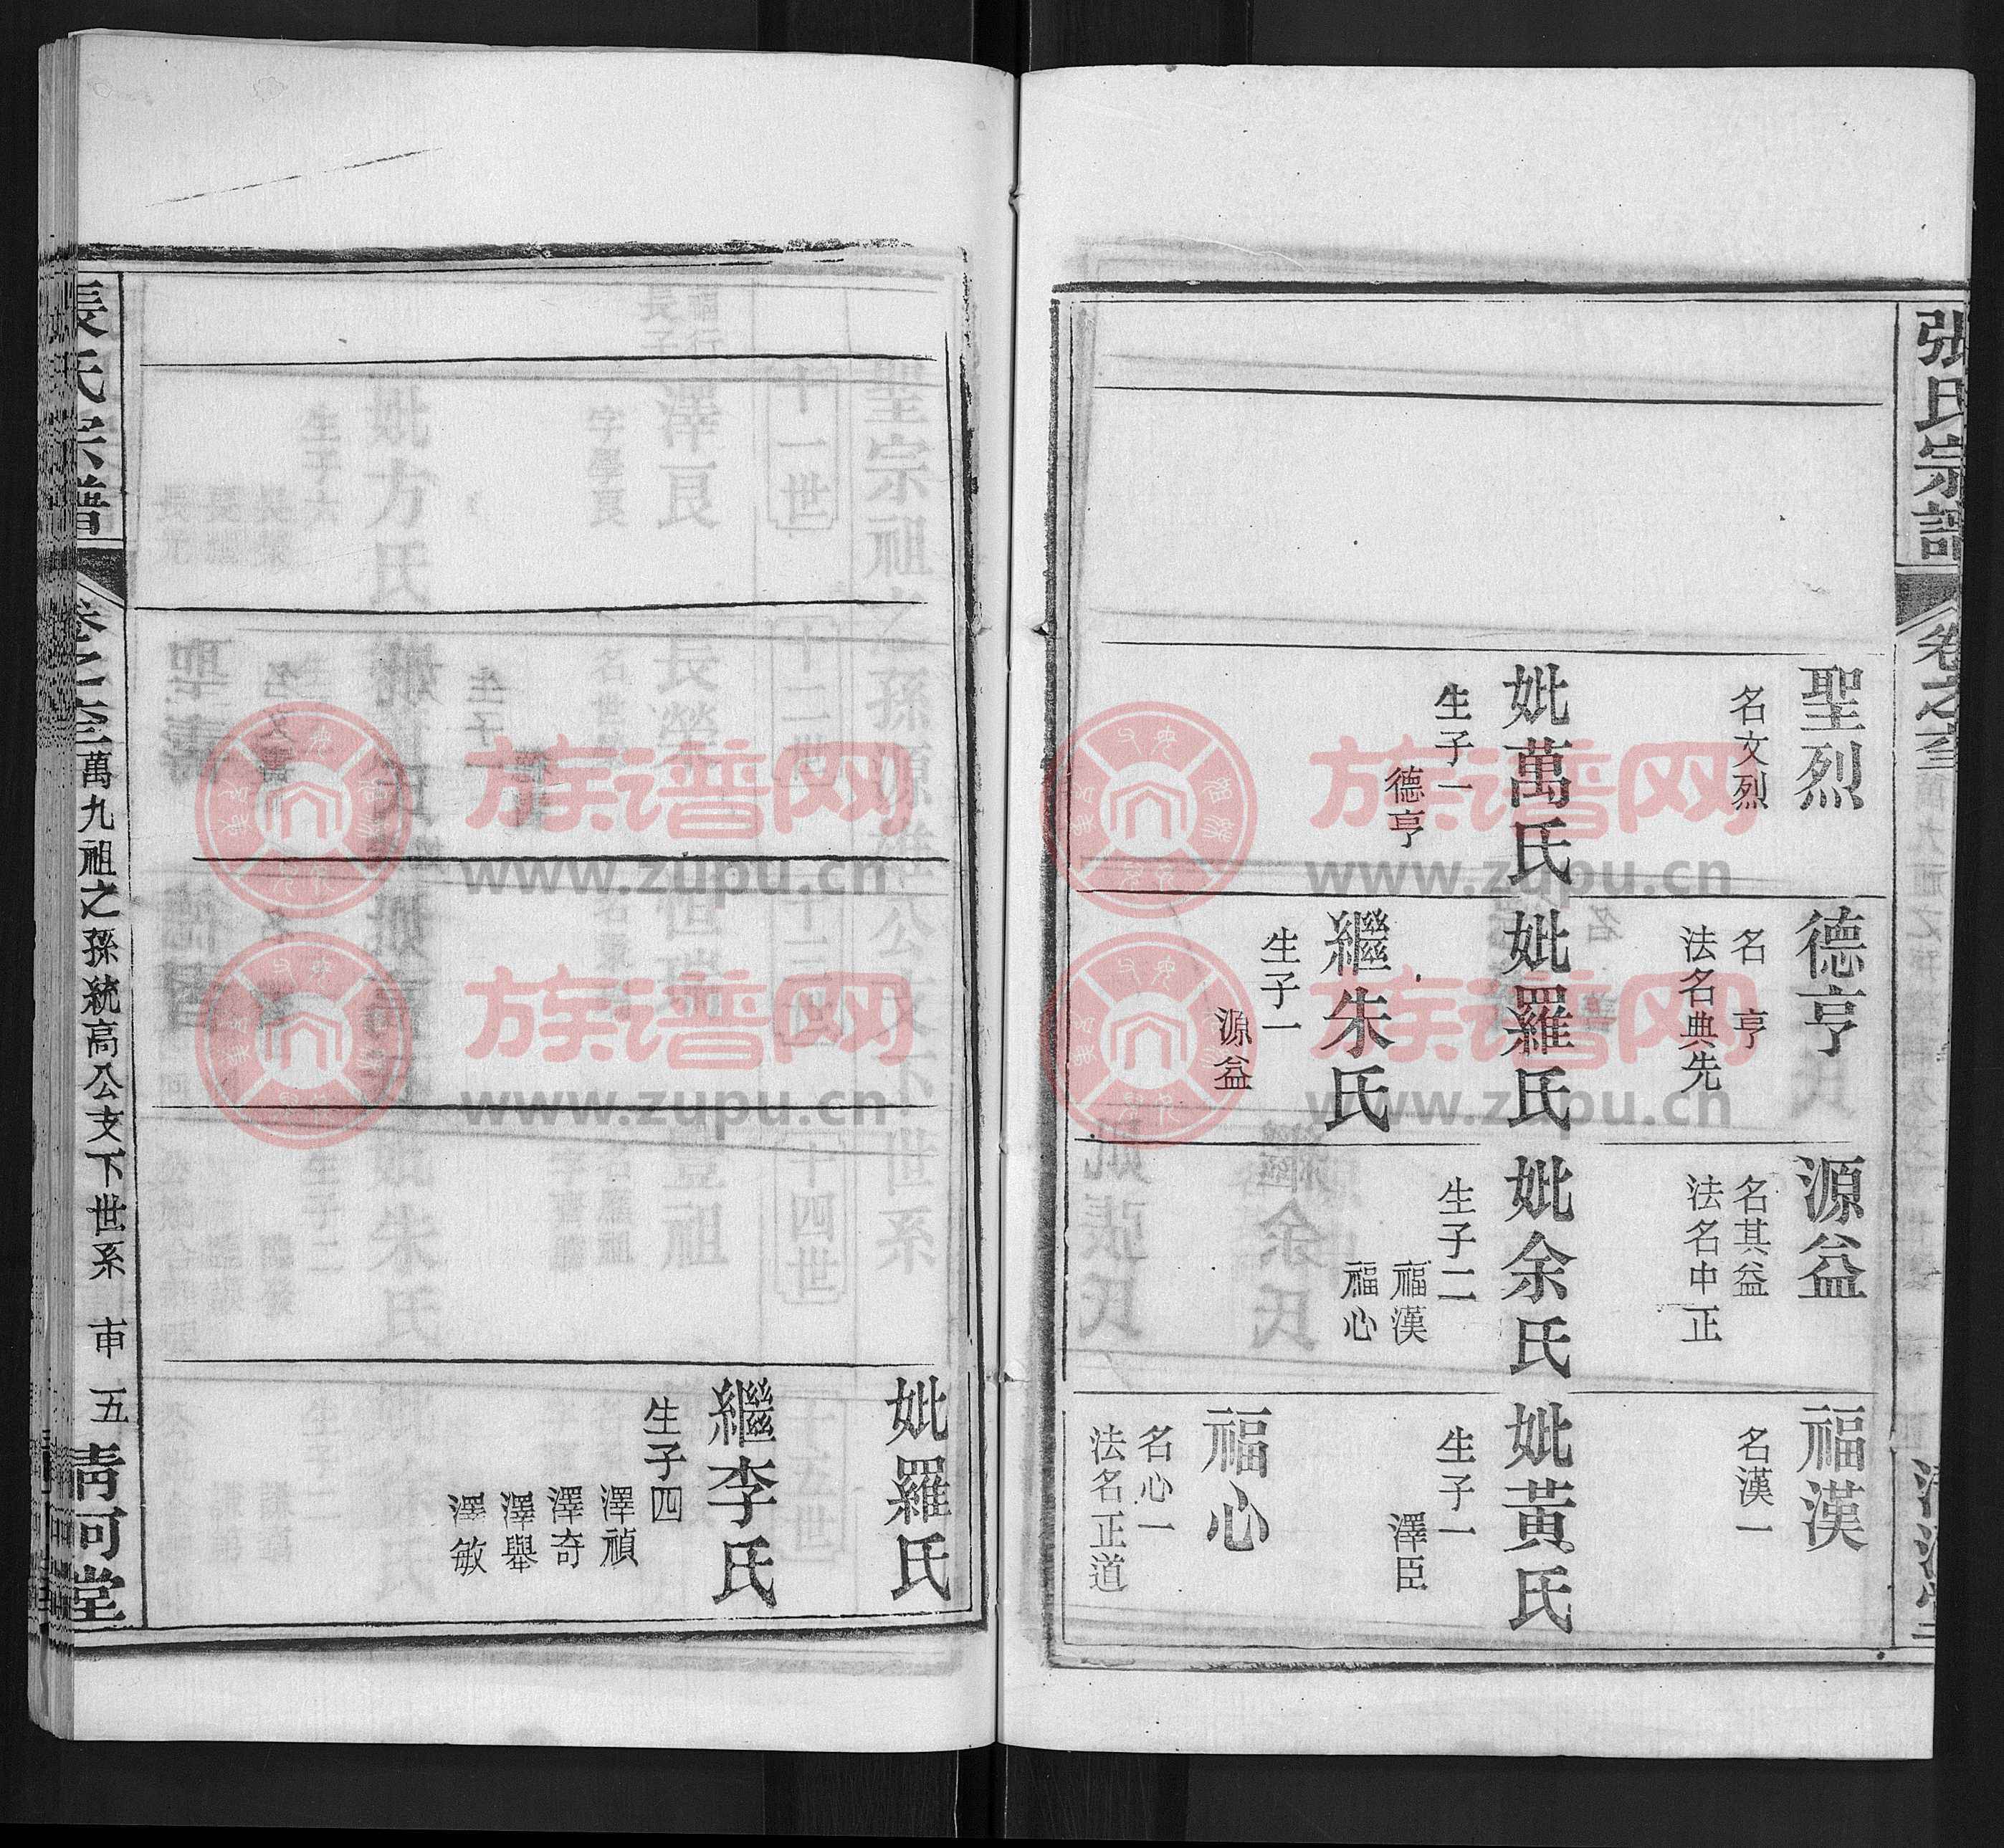 張氏宗譜
卷之
聖烈
名文烈
妣萬氏
生子一
德亨
德亨
名亨
法名典先
妣羅氏
繼朱氏
生子一
源益
源益
名其益
法名中正
妣余氏
生子二
福漢
福心
福漢
名漢一
妣黃氏
生子一
澤臣
福心
名心一
法名正道
妣羅氏
繼李氏
生子四
澤禎
澤奇
澤舉
澤敏
張氏宗譜
萬九祖之孫統高公支下世系
五
清河堂
族谱网
www.zupu.cn
族谱网
www.zupu.cn
族谱网
www.zupu.cn
族谱网
www.zupu.cn